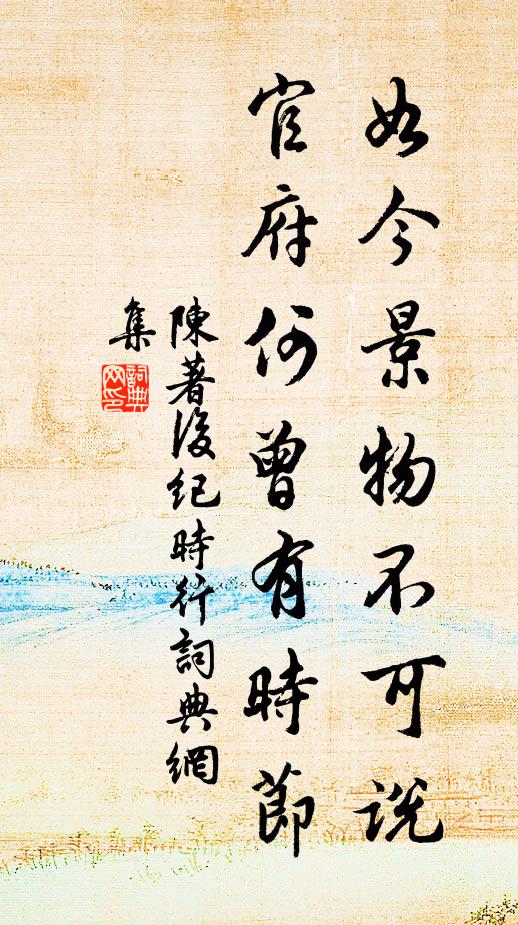 如今景物不可說
官府何曾有時節
陳著後紀時行詞典網
集
詞典网印